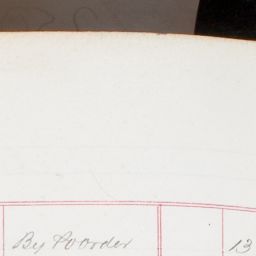 By P.O. order 13